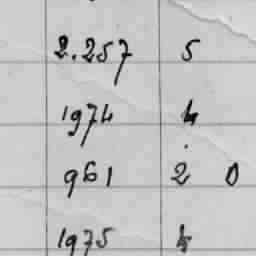 2.257 5
1974 4
961 2 0
1975